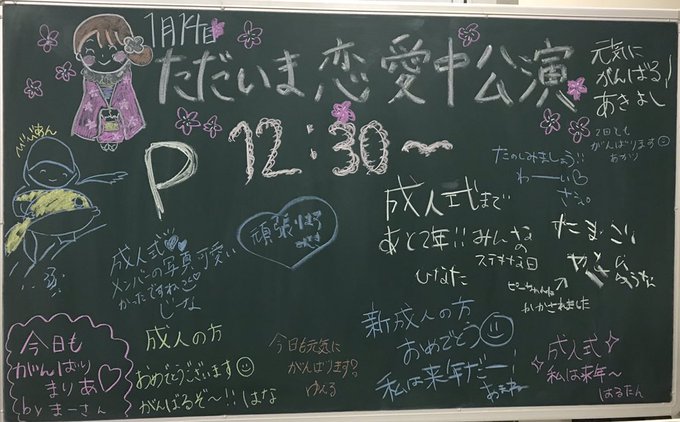 1月14日
ただいま恋愛中公演
P 12:30〜
元気に
がんばる!
あきよし
2日とも
がんばります☺
たのしみましょう!!
わーい♡
成人式まで
あと2年!! みんなの
ステキな日
ひなた
たまごい
かかされました
頑張ろう
成人式♡♡
メンバーの写真可愛い
かったですね
じーな
今日も
がんばり
まりあ♡
by まーさん
成人の方
おめでとうございます☺
がんばるぞ〜!! はな
今日も元気に
がんばります!
ゆえる
新成人の方
おめでとう☺
私は来年だー!
成人式
私は来年〜
はるたん